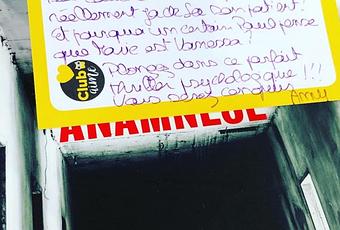 réellement jadis son patient?
et pourquoi un certain Paul pense
que Marie est Vanessa?
Plongez dans ce parfait
thriller psychologique!!!
Vous serez conquis
Anny
Club
aime
ANAMNÈSE